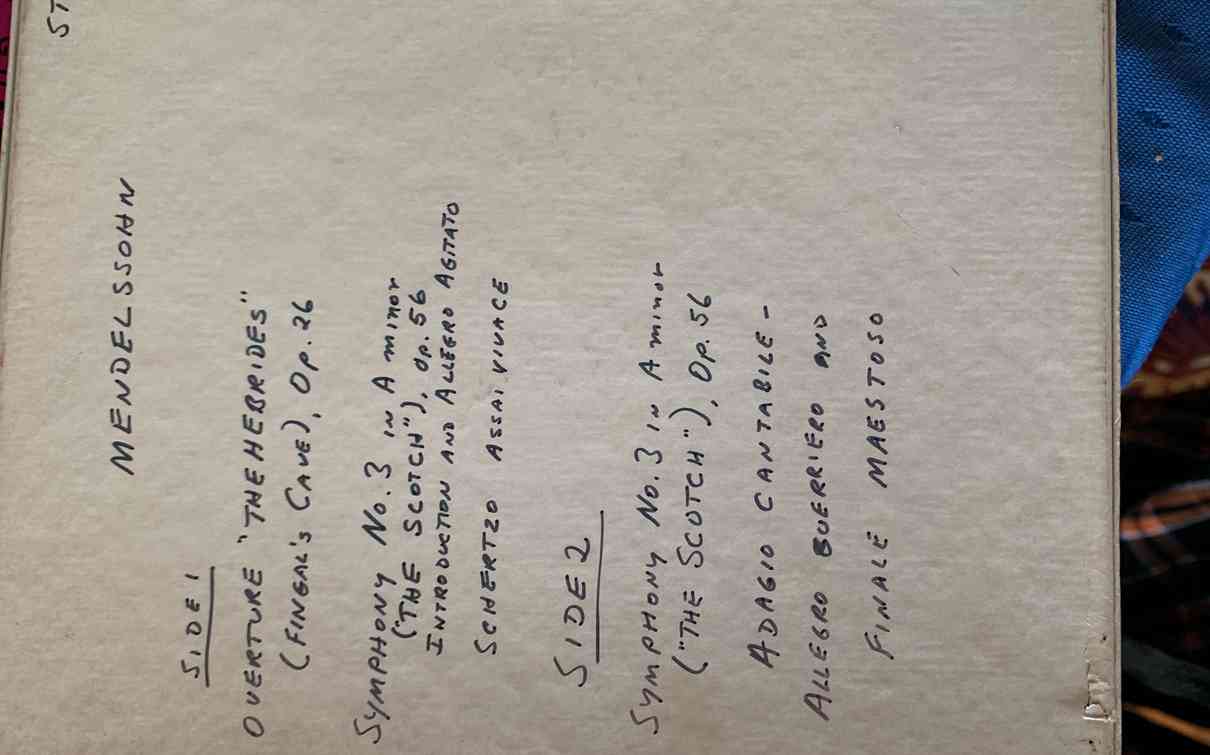 ST
MENDELSSOHN
SIDE 1
OVERTURE "THE HEBRIDES"
(FINGAL'S CAVE), OP. 26
SYMPHONY NO. 3 IN A minor
("THE SCOTCH"), OP. 56
INTRODUCTION AND ALLEGRO AGITATO
SCHERTZO ASSAI VIVACE
SIDE 2
SYMPHONY NO. 3 IN A minor
("THE SCOTCH"), OP. 56
ADAGIO CANTABILE -
ALLEGRO GUERRIERO AND
FINALE MAESTOSO